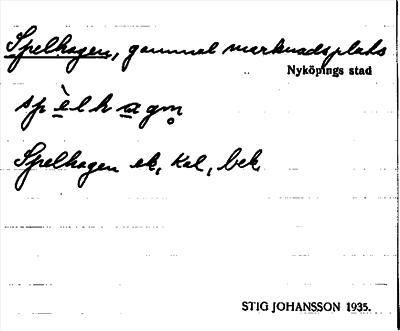 Spelhagen, gammal marknadsplats
Nyköpings stad
spèlhagm̥
Spelhagen ek, kal, bek.
STIG JOHANSSON 1935.